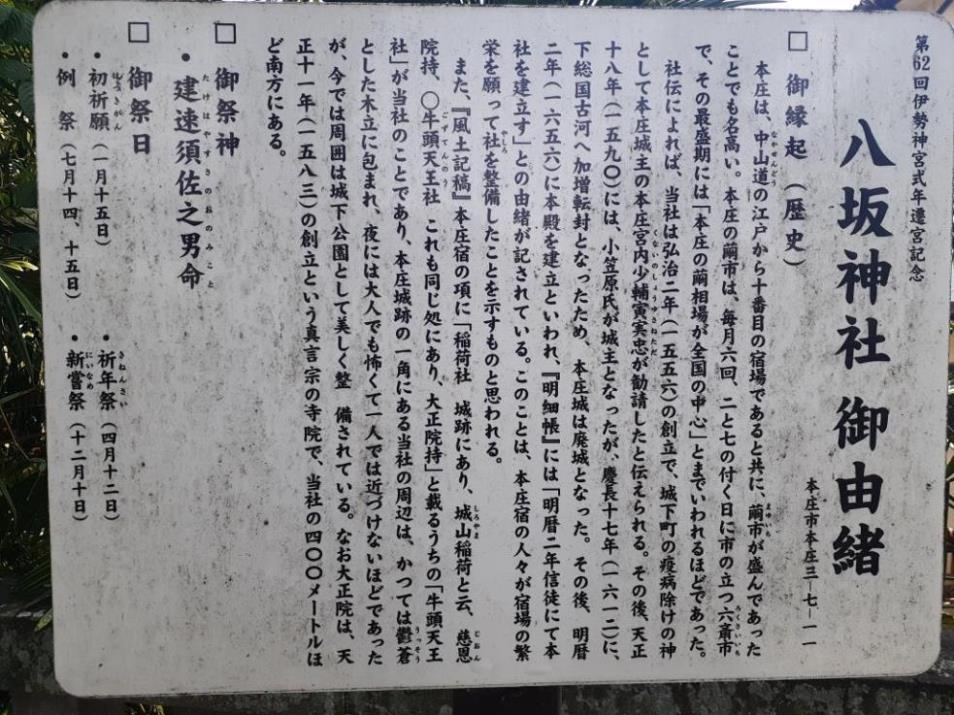 第62回伊勢神宮式年遷宮記念
八坂神社 御由緒
本庄市本庄三-七-一一
□ 御縁起（歴史）
本庄は、中山道の江戸から十番目の宿場であると共に、繭市が盛んであった
ことでも名高い。本庄の繭市は、毎月六回、二と七の付く日に市の立つ六斎市
で、その最盛期には「本庄の繭相場が全国の中心」とまでいわれるほどであった。
社伝によれば、当社は弘治二年（一五五六）の創立で、城下町の疫病除けの神
として本庄城主の本庄宮内少輔寅実忠が勧請したと伝えられる。その後、天正
十八年（一五九〇）には、小笠原氏が城主となったが、慶長十七年（一六一二）に、
下総国古河へ加増転封となったため、本庄城は廃城となった。その後、明暦
二年（一六五六）に本殿を建立といわれ、『明細帳』には「明暦二年信徒にて本
社を建立す」との由緒が記されている。このことは、本庄宿の人々が宿場の繁
栄を願って社を整備したことを示すものと思われる。
また、『風土記稿』本庄宿の項に「稲荷社 城跡にあり、城山稲荷と云、慈恩
院持、〇牛頭天王社 これも同じ処にあり、大正院持」と載るうちの「牛頭天王
社」が当社のことであり、本庄城跡の一角にある当社の周辺は、かつては鬱蒼
とした木立に包まれ、夜には大人でも怖くて一人では近づけないほどであった
が、今では周囲は城下公園として美しく整 備されている。なお大正院は、天
正十一年（一五八三）の創立という真言宗の寺院で、当社の四〇〇メートルほ
ど南方にある。
□ 御祭神
・建速須佐之男命
□ 御祭日
・初祈願（一月十五日） ・祈年祭（四月十二日）
・例 祭（七月十四、十五日） ・新嘗祭（十二月十日）